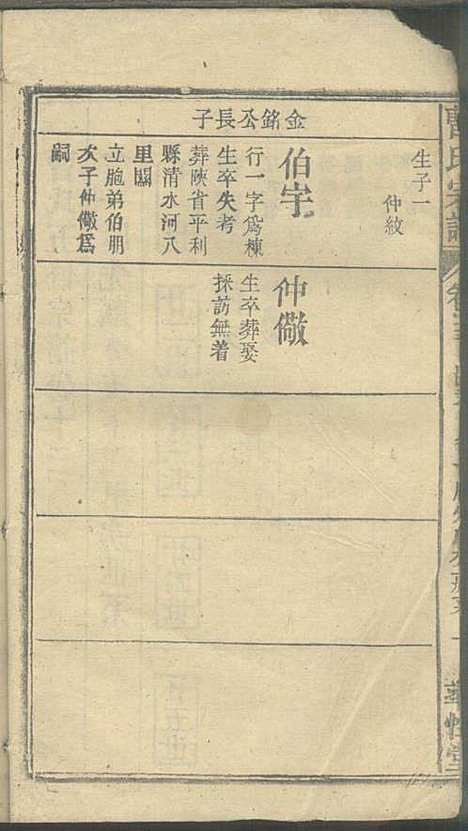 生子一
仲紋
金銘公長子
伯宇
行一字爲棟
生卒失考
葬陝省平利
縣清水河八
里關
立胞弟伯朋
次子仲儆爲
嗣
仲儆
生卒葬娶
採訪無着
氏宗譜